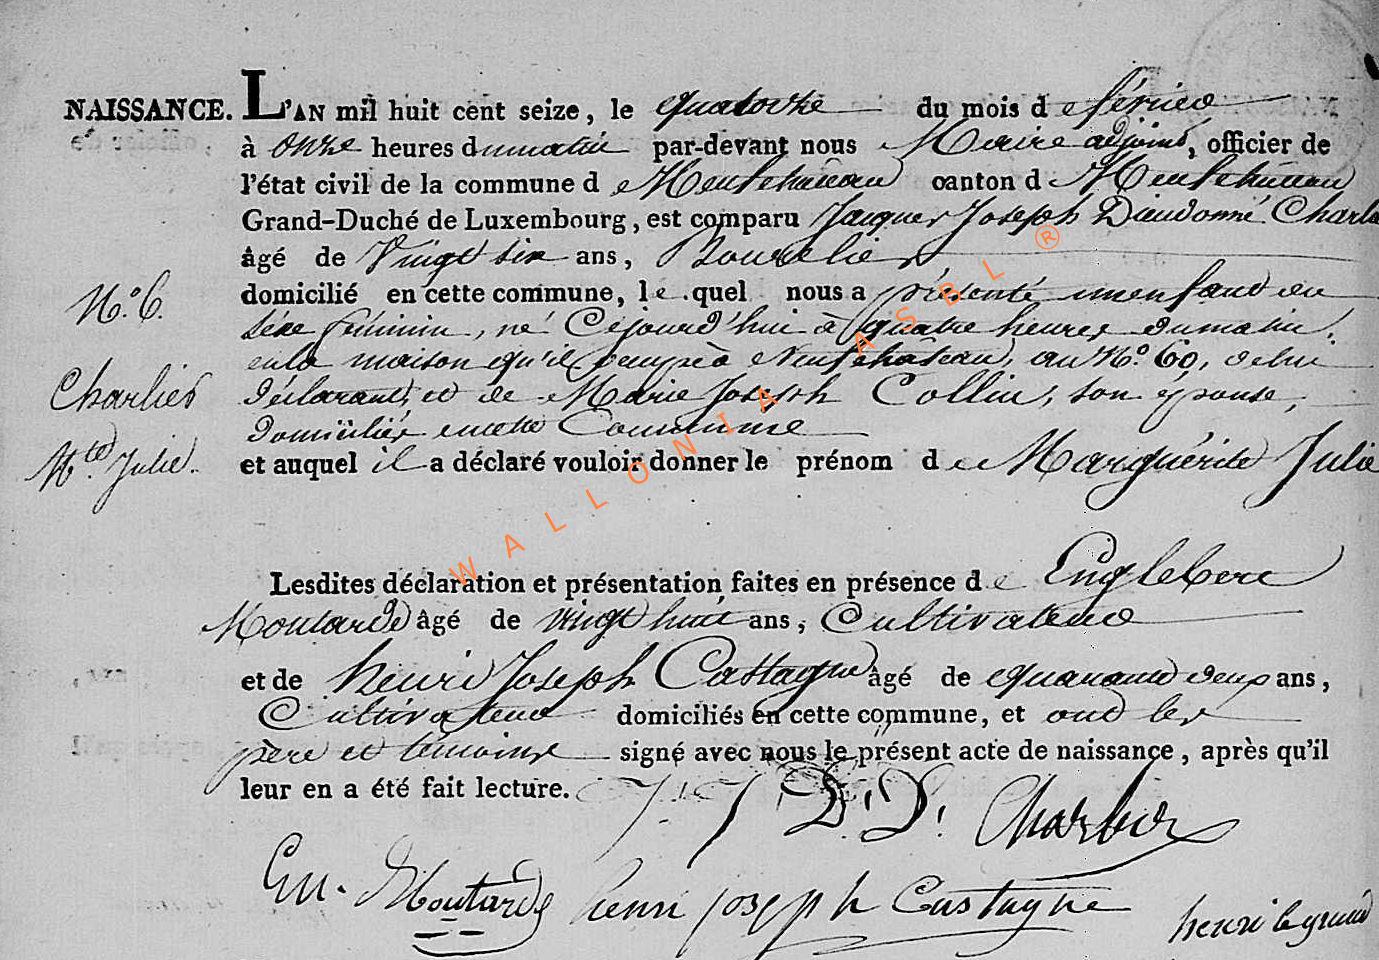 NAISSANCE. L'AN mil huit cent seize, le quatorze du mois de février
à onze heures du matin par-devant nous Maire adjoint, officier de
l'état civil de la commune de Neufchâteau canton de Neufchâteau
Grand-Duché de Luxembourg, est comparu Jacques Joseph Dieudonné Charl
âgé de Vingt six ans, Bourelier
domicilié en cette commune, le quel nous a présenté un enfant du
N.º 6.
sèxe féminin, né Cejourd'hui à quatre heures du matin,
en la maison qu'il occupe à Neufchâteau, au Nº 60, de lui
Charlier
déclarant, et de Marie Joseph Collin, son épouse,
domiciliés en cette Commune
Mte Julie.
et auquel il a déclaré vouloir donner le prénom de Marguérite Julie
Lesdites déclaration et présentation faites en présence de Englebert
Moutarde âgé de vingt huit ans, Cultivateur
et de henri Joseph Castagne âgé de quarante deux ans,
Cultivateur domiciliés en cette commune, et ont les
père et témoins signé avec nous le présent acte de naissance, après qu'il
leur en a été fait lecture. J. J. D. D. Charlier
En. Moutarde henri joseph Castagne henri legrand
WALLONIA ASBL ®